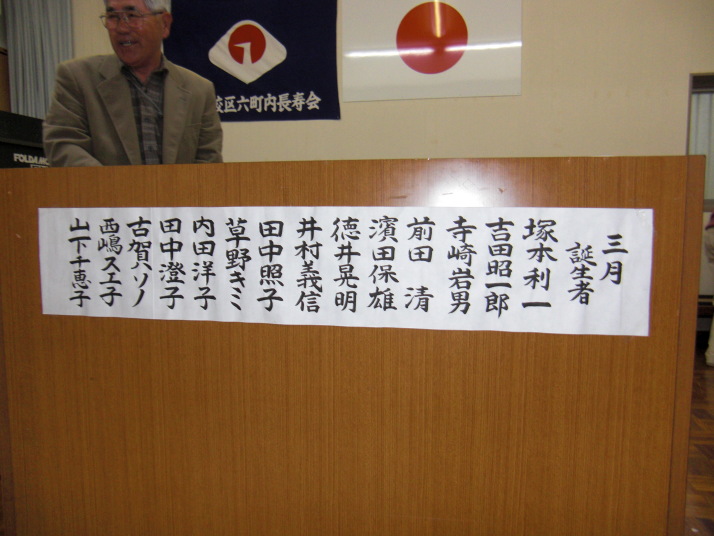 校区六町内長寿会
FOLDA
三月
誕生者
塚本利一
吉田昭一郎
寺崎岩男
前田 清
濱田保雄
徳井晃明
井村義信
田中照子
草野キミ
内田洋子
田中澄子
古賀ハソノ
西嶋スエ子
山下千恵子